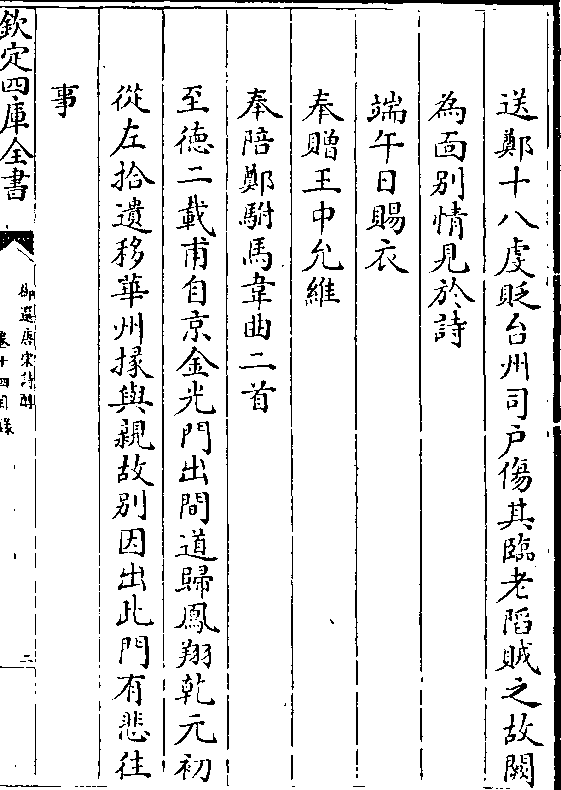 送鄭十八虔貶台州司户傷其臨老陷賊之故闕
為面别情見於詩
端午日賜衣
奉贈王中允維
奉陪鄭駙馬韋曲二首
至德二載甫自京金光門出間道歸鳳翔乾元初
從左拾遺移華州掾與親故别因出此門有悲往
事
欽定四庫全書
御選唐宋詩醇
卷十四目錄
二